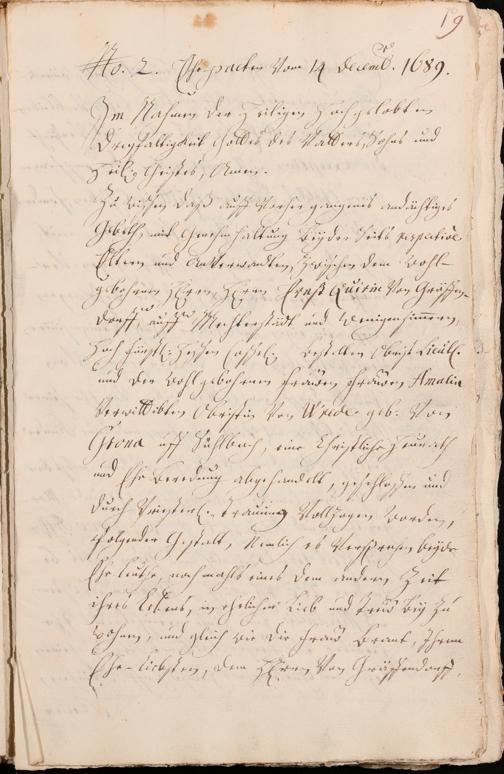 19
No. 2. Ehepacten Vom 14 Decemb. 1689.
Im Nahmen der Heiligen Hochgelobten
Dreyfaltigkeit Gottes des Vatters, Sohns und
Heilig Geistes, Amen.
Zu wißen daß auff Vorher gangenes andächtiges
Gebeth, mit Genehmhaltung beyder seits respective
Eltern und Anverwandten, Zwischen dem Wohl-
gebohrnen Herrn, Herrn Ernst Quirin Von Gräffen-
dorff, auff Mechterstädt und Wenigensömmern,
Hoch fürstl. Heßen Casseli. bestellten Obrist Lieutl.
und der Wohlgebohrnen frauen frauen Amalia
Verwittibten Obristin Von Weide geb. Von
Grona uff Sühlbach, eine Christliche Heurath
und Ehe Beredung abgehandelt, geschloßen und
durch Priesterl. Trauung Vollzogen worden,
folgender Gestalt, Nemlich es Versprechen beyde
Eheleuthe, nochmahls eines dem andern Zeit
ihres Lebens, in ehelicher Lieb und Treu bey Zu
wohnen, und gleich wie die frau Braut, Ihrem
Ehe-liebsten, dem Herrn Von Gräffendorff,